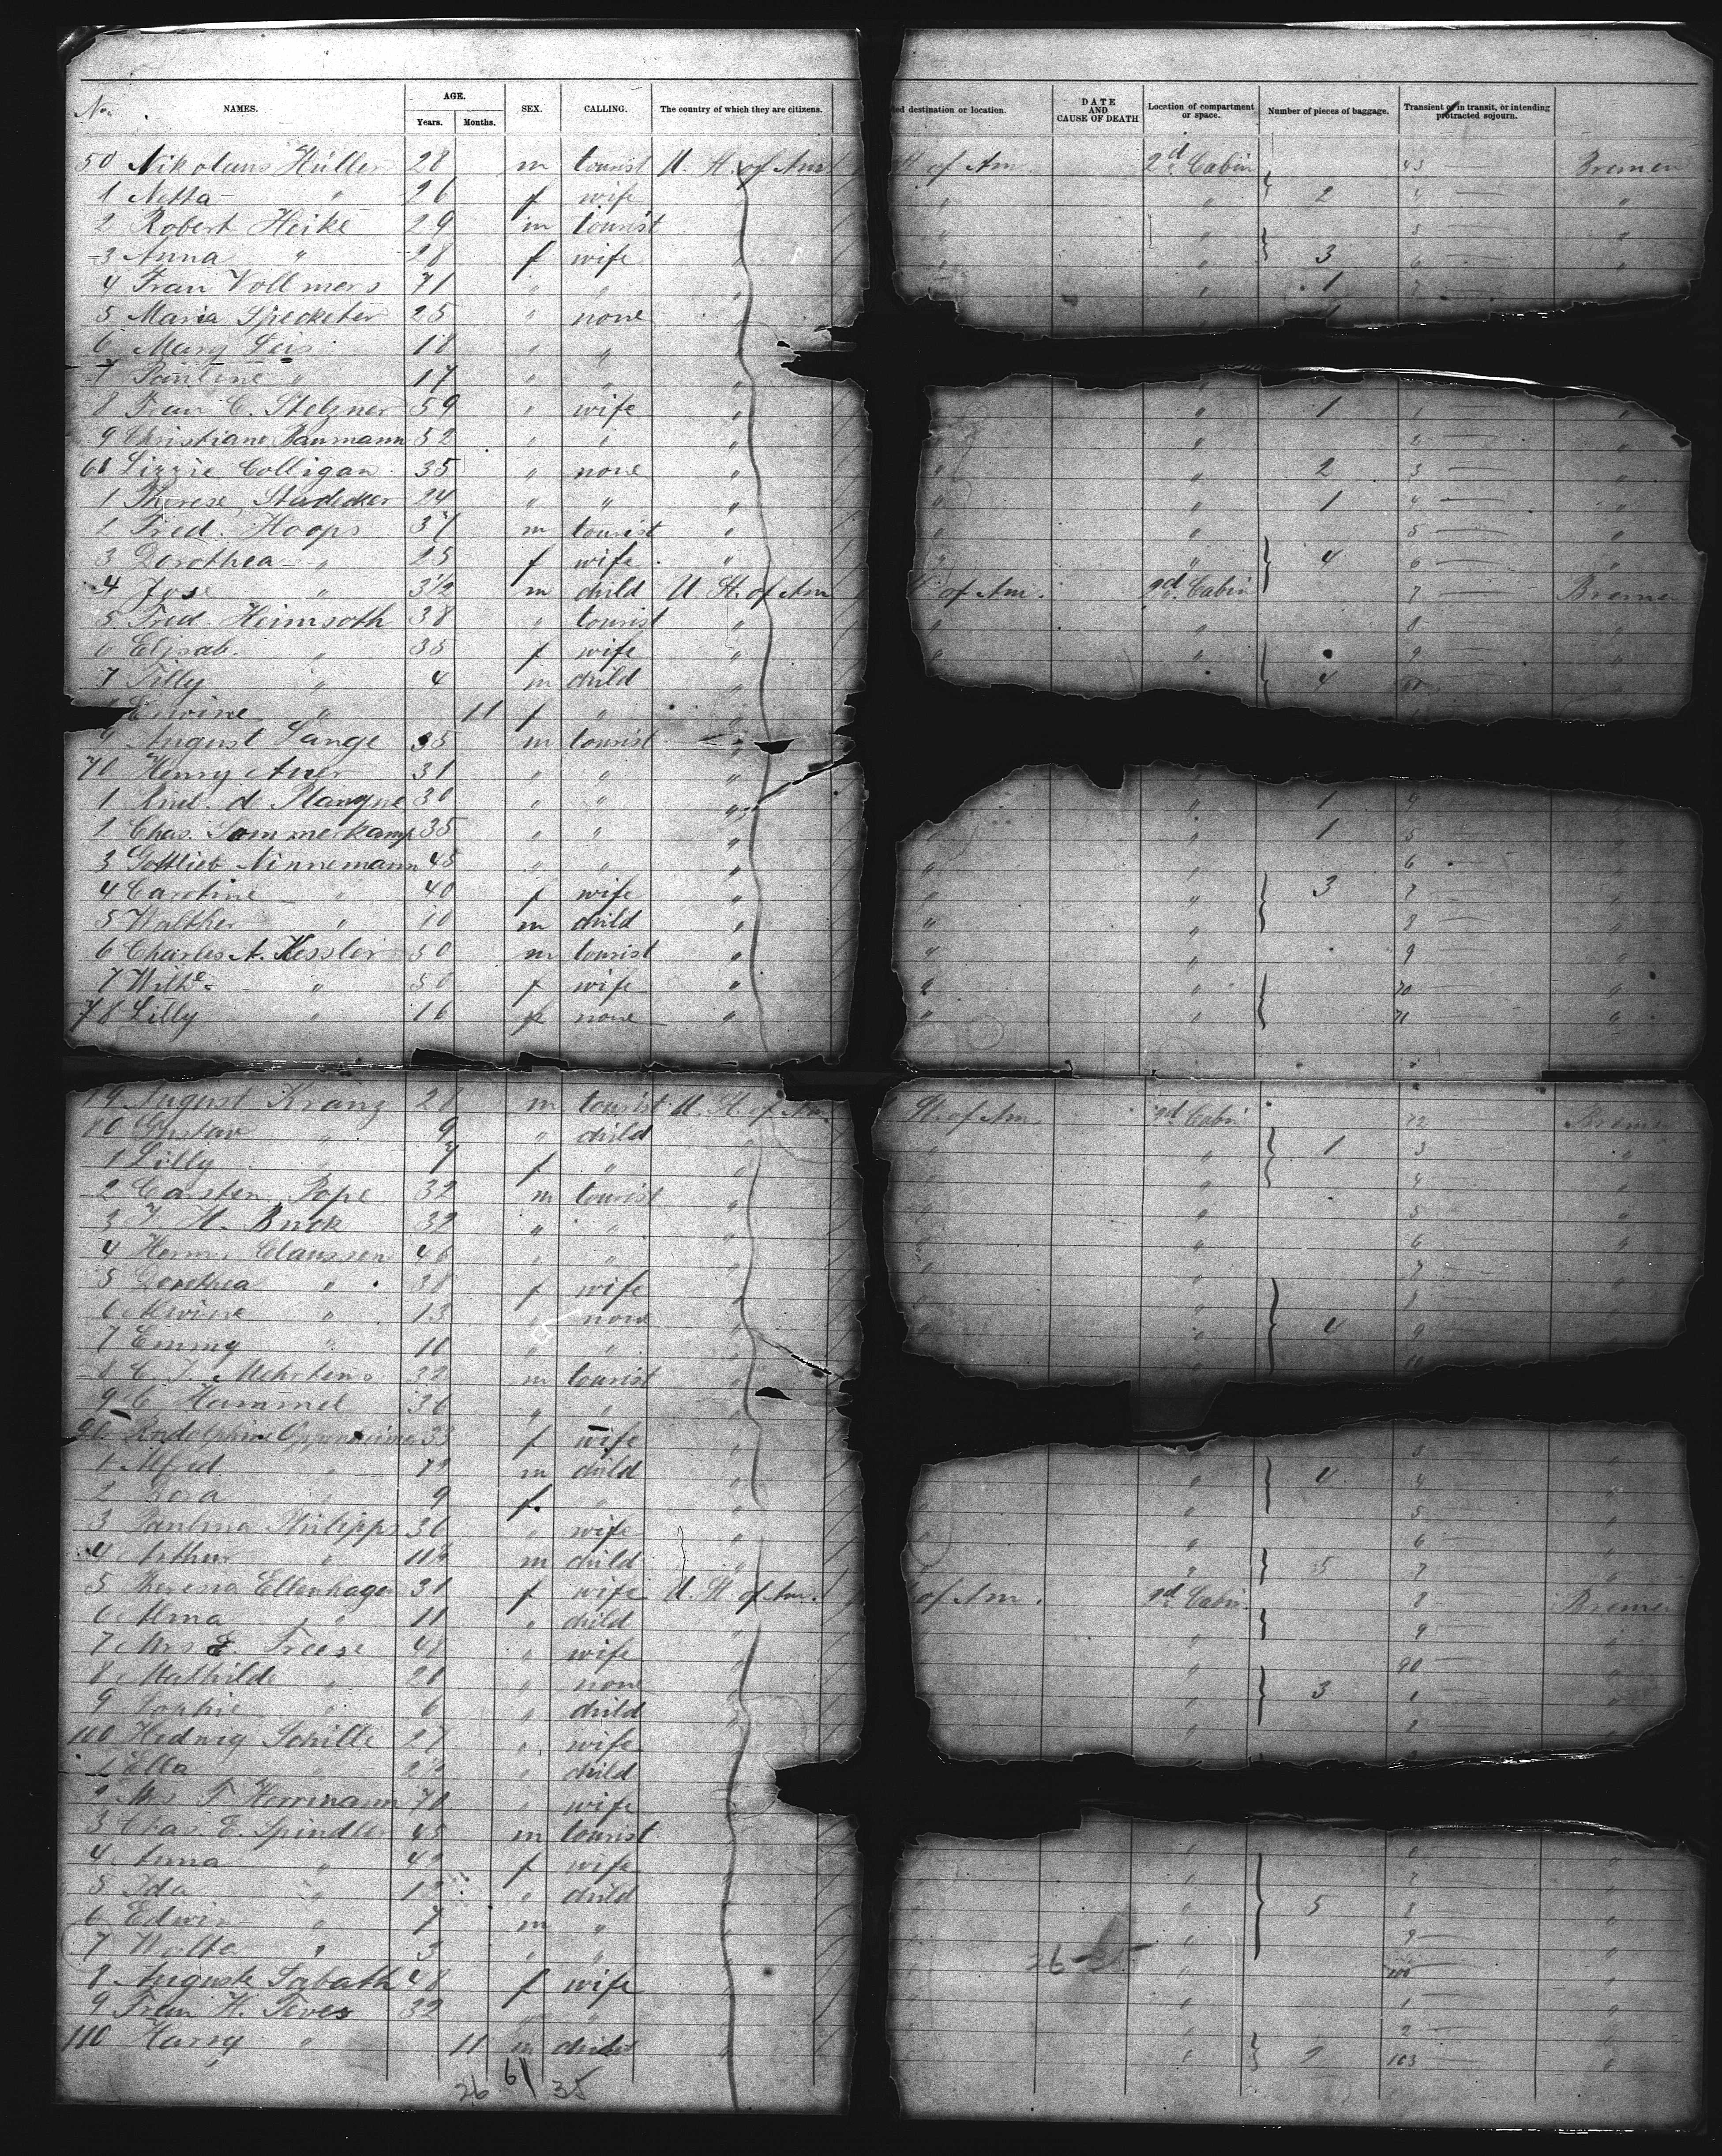 No. NAMES. AGE. Years. Months. SEX. CALLING. The country of which they are citizens. ed destination or location. DATE AND CAUSE OF DEATH Location of compartment or space. Number of pieces of baggage. Transient or in transit, or intending protracted sojourn.
50 Nikolaus Hüller 28 m tourist U. St. of Am St of Am 2d Cabin 43 Bremen
1 Netta " 26 f wife " " 2 4 "
2 Robert Heike 29 m tourist " " 5 "
3 Anna " 28 f wife " " 3 6 "
4 Frau Vollmers 71 " " " " 1 7
5 Maria Specketer 25 " none "
6 Mary Leis 18 " " "
7 Pauline " 17 " " "
8 Frau C. Stelzner 59 " wife " " 1 1 "
9 Christiane Naumann 52 " " " " 2 "
60 Lizzie Colligan 35 " none " " " 2 3 "
1 Therese Studecker 24 " " " " " 1 4 "
2 Fred. Hoops 37 m tourist " " 5 "
3 Dorothea " 25 f wife " " " 4 6 "
4 Jose " 3½ m child U. St. of Am of Am. 2d. Cabin 7 Bremen
5 Fred. Heimsoth 38 " tourist " " " 8 "
6 Elisab. " 35 f wife " " " 9 "
7 Tilly " 4 m child " 4
Erwine " 11 f " "
9 August Lange 35 m tourist "
70 Henry Auer 31 " " "
1 30 " " " " 1 4 "
2 Chas. Sommerkamp 35 " " " " 1 5 "
3 Gottlieb Ninnemann 45 " " " " " 6 "
4 Caroline " 40 f wife " " " 3 7 "
5 Walther " 10 m child " " " 8 "
6 Charles A. Kessler 50 m tourist " " " 9 "
7 Wilhe. " 50 f wife " " " 70 "
78 Lilly " 16 f none " " " 71 "
79 August Kranz 28 m tourist U. St. of Am St. of Am. 2d Cabin 72 Bremen
80 Gustav " 9 " child " " " 1 3 "
1 Lilly " 7 f " " " 4 "
2 Carsten Pope 32 m tourist " " 5 "
3 J. H. Buck 32 " " " " 6 "
4 Herm. Claussen 46 " " " " 7 "
5 Dorothea " 38 f wife " " 8 "
6 Alwine " 13 " none " " 4 9 "
7 Emmy " 10 " " " "
8 C. J. Mehrtens 32 m tourist "
9 C. Hammel 36 " " "
90 Rudolphine Oppenheimer 33 f wife "
1 Alfred " 12 m child " " 4 4 "
2 Dora " 9 f " " " 5 "
3 Paulina Philipps 36 " wife " " 6 "
4 Arthur " 11½ m child " " 7 "
5 Theresa Ellenhagen 31 f wife U. St. of Am. of Am. 2d. Cabin. 8 Bremen
6 Alma " 11 " child " " 9 "
7 Mrs E. Freese 48 " wife " " 90 "
8 Mathilde " 20 " none " " 3 1 "
9 Sophie " 6 " child " " 2 "
100 Hedwig Schille 27 " wife "
1 Ella " 2½ " child "
2 Mrs F. Herrmann 70 " wife "
3 Chas. E. Spindler 45 m tourist " " 6 "
4 Anna " 42 f wife " " 7 "
5 Ida " 12 " child " " 5 8 "
6 Edwin " 7 m " " " 9 "
7 Walte " 3 " " " " 100 "
8 Auguste Sabath 48 f wife " " 1 "
9 Frau H. Peves 32 " " " " 2 "
110 Harry " 11 m child " " 2 103 "
26 61 35